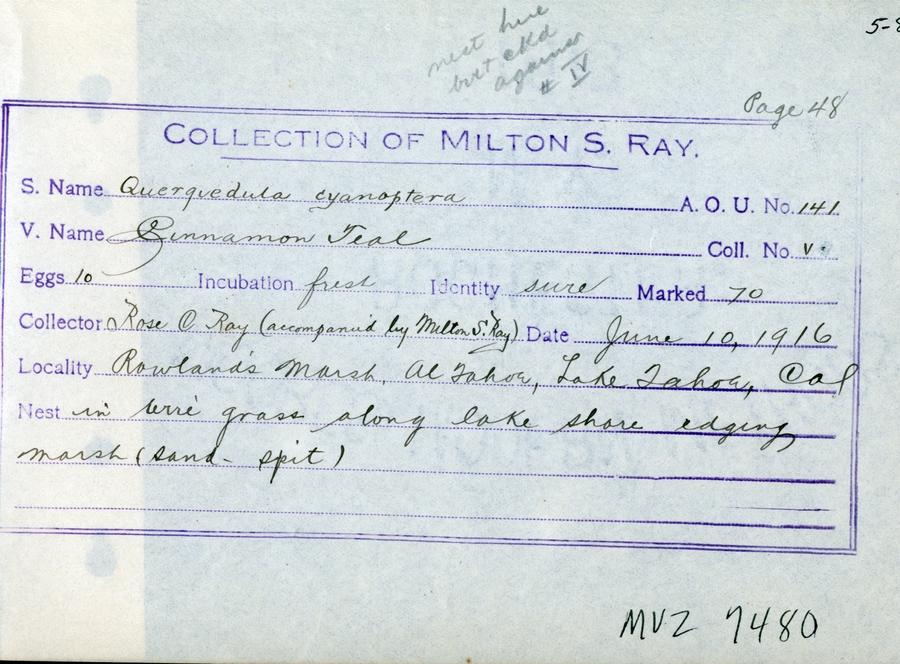 nest here
but ckd
against
# IV
5-8
Page 48
COLLECTION OF MILTON S. RAY.
S. Name Querquedula cyanoptera A. O. U. No. 141
V. Name Cinnamon Teal Coll. No. V
Eggs 10 Incubation fresh Identity sure Marked 70
Collector Rose C. Ray (accompanied by Milton S. Ray) Date June 10, 1916
Locality Rowland's Marsh, Al Tahoe, Lake Tahoe, Cal
Nest in wire grass along lake shore edging
marsh (sand-spit)
MVZ 7480